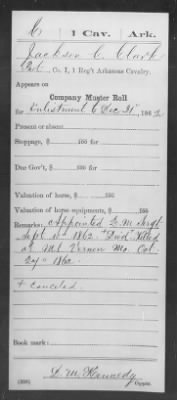 C 1 Cav. Ark.
Jackson C. Clark
Pvt., Co. I, 1 Reg't Arkansas Cavalry.
Appears on
Company Muster Roll
for Enlistment to Dec 31", 1862
Present or absent
Stoppage, $ 100 for
Due Gov't, $ 100 for
Valuation of horse, $ 100
Valuation of horse equipments, $ 100
Remarks: Appointed Q. M. Sergt
Sept 1" 1862. Killed
at Mt. Vernon Mo. Oct
1862.
+ canceled.
Book mark:
(358)
D. M. Kennedy
Copyist.